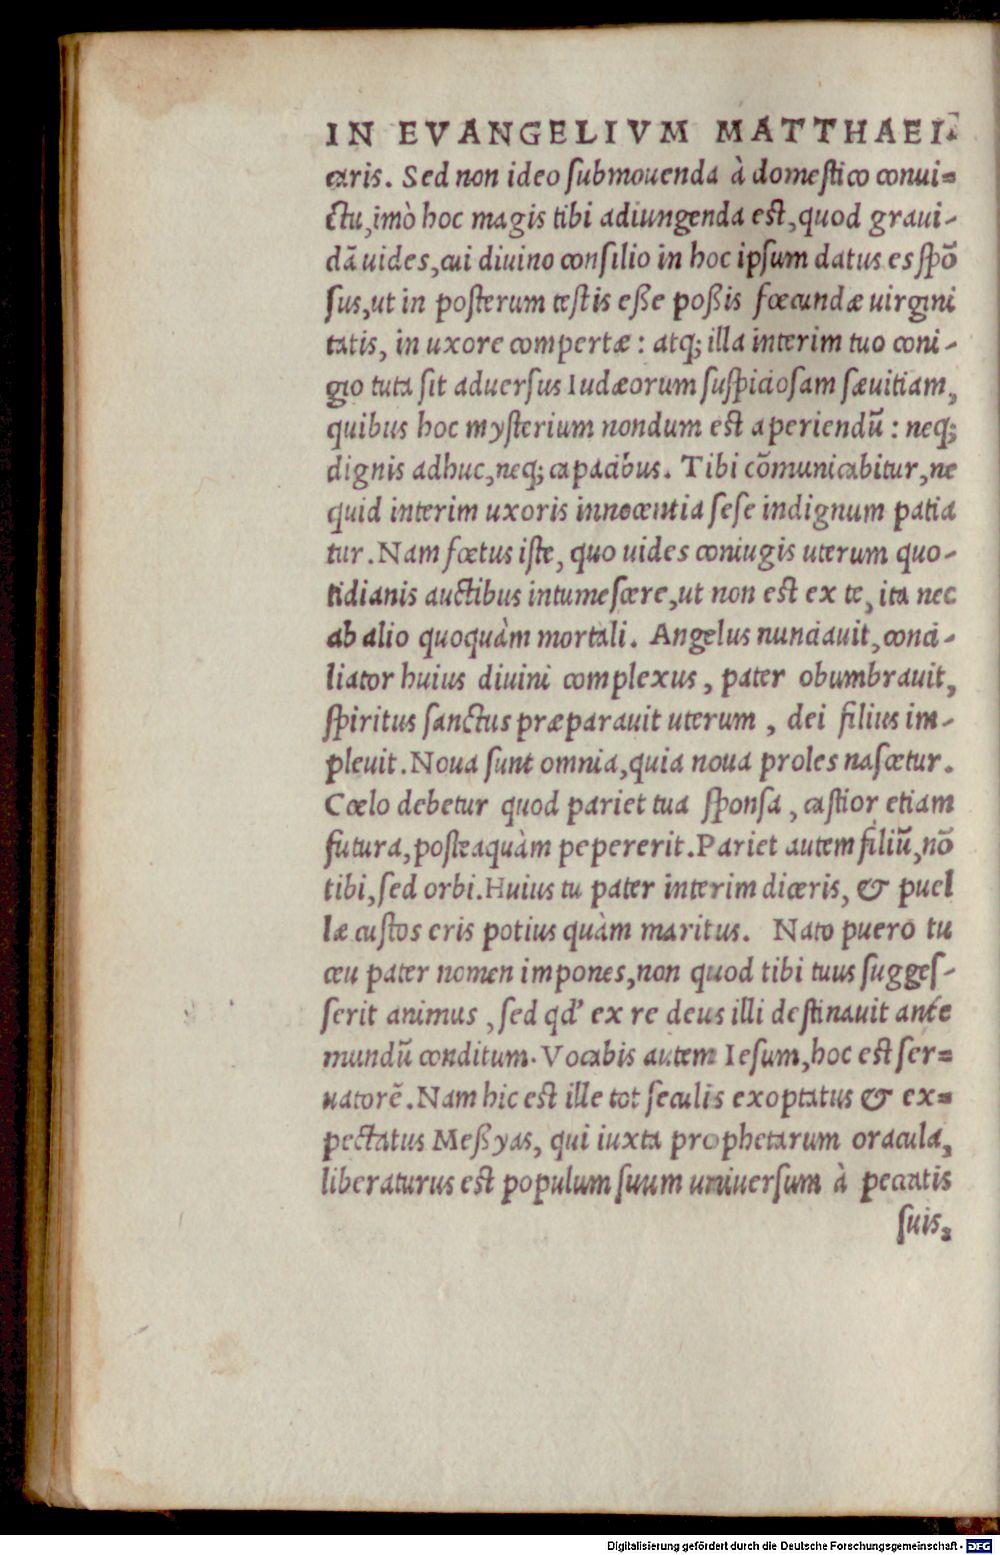 IN EVANGELIVM MATTHAEI.
caris. Sed non ideo ſubmouenda à domeſtico conui=
ctu, imò hoc magis tibi adiungenda eſt, quod graui-
dā uides, cui diuino conſilio in hoc ipſum datus es ſpō
ſus, ut in poſterum teſtis eße poßis fœcundæ uirgini
tatis, in uxore compertæ : atq; illa interim tuo coni-
gio tuta ſit aduerſus Iudæorum ſuſpicioſam ſæuitiam,
quibus hoc myſterium nondum eſt aperiendū : neq;
dignis adhuc, neq; capacibus. Tibi cōmunicabitur, ne
quid interim uxoris innocentia ſeſe indignum patia
tur. Nam fœtus iſte, quo uides coniugis uterum quo-
tidianis auctibus intumeſcere, ut non eſt ex te, ita nec
ab alio quoquàm mortali. Angelus nunciauit, conci-
liator huius diuini complexus, pater obumbrauit,
ſpiritus ſanctus præparauit uterum, dei filius im-
pleuit. Noua ſunt omnia, quia noua proles naſcetur.
Cœlo debetur quod pariet tua ſponſa, caſtior etiam
futura, poſteaquàm pepererit. Pariet autem filiū, nō
tibi, ſed orbi. Huius tu pater interim diceris, & puel
læ cuſtos eris potius quàm maritus. Nato puero tu
ceu pater nomen impones, non quod tibi tuus ſuggeſ-
ſerit animus, ſed qd' ex re deus illi deſtinauit ante
mundū conditum. Vocabis autem Ieſum, hoc eſt ſer=
uatorē. Nam hic eſt ille tot ſeculis exoptatus & ex=
pectatus Meßyas, qui iuxta prophetarum oracula,
liberaturus eſt populum ſuum uniuerſum à peccatis
ſuis,
Digitalisierung gefördert durch die Deutsche Forschungsgemeinschaft - DFG